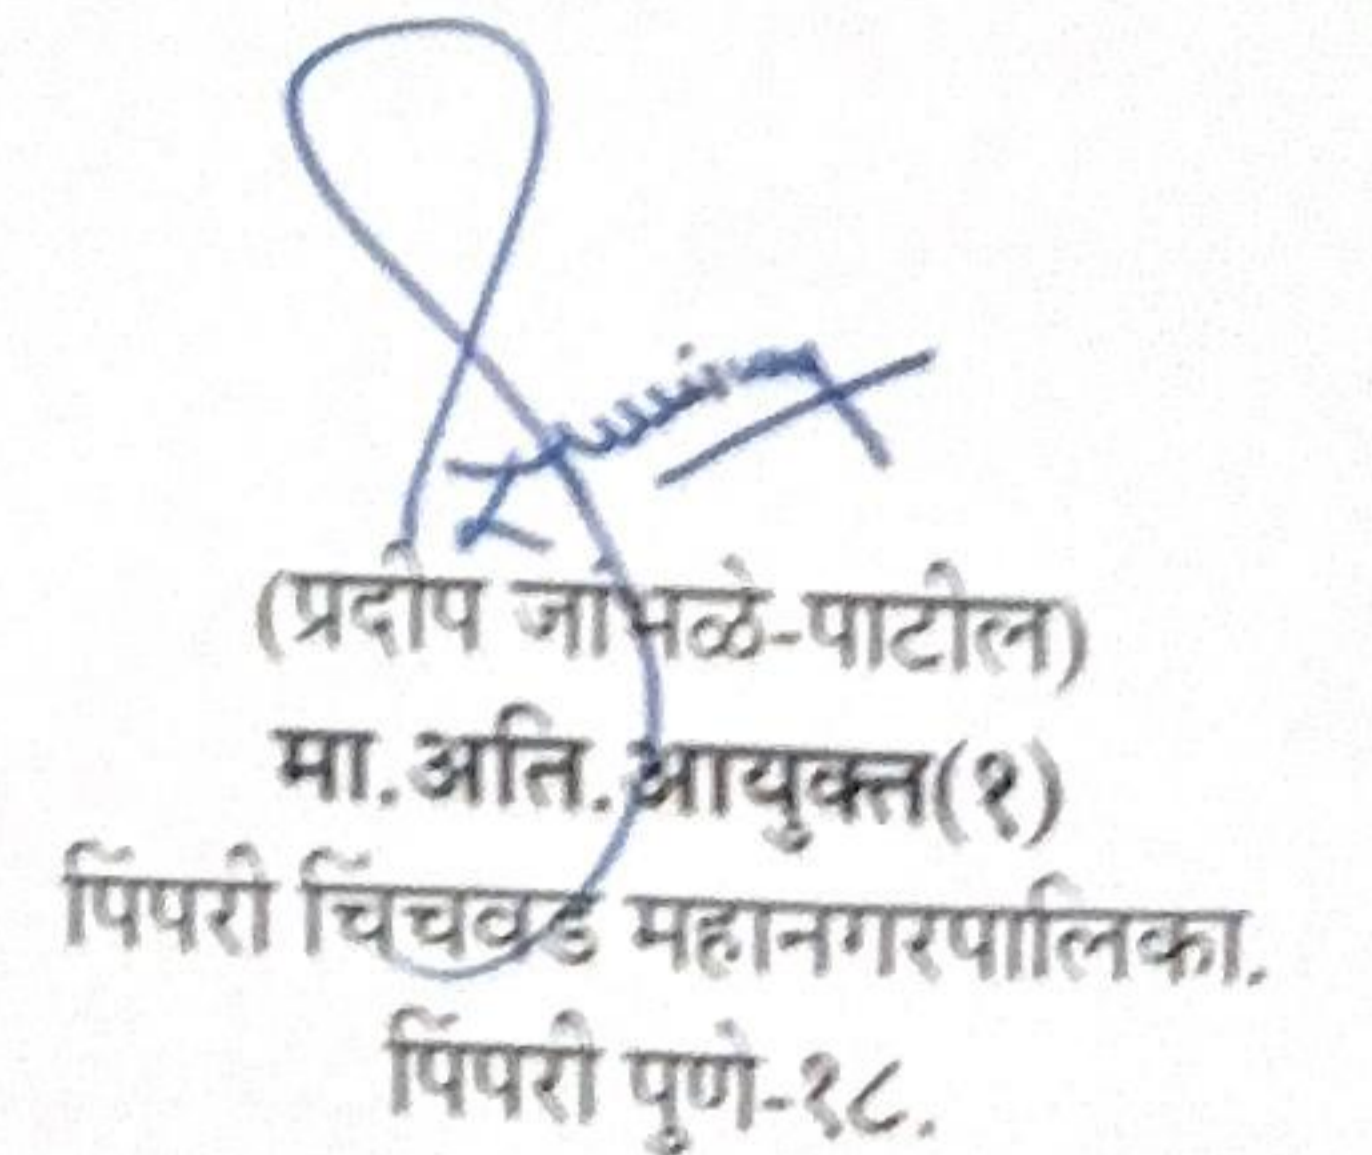 (प्रदीप जांभळे-पाटील)
मा.अति.आयुक्त(१)
पिंपरी चिंचवड महानगरपालिका.
पिंपरी पुणे-१८.